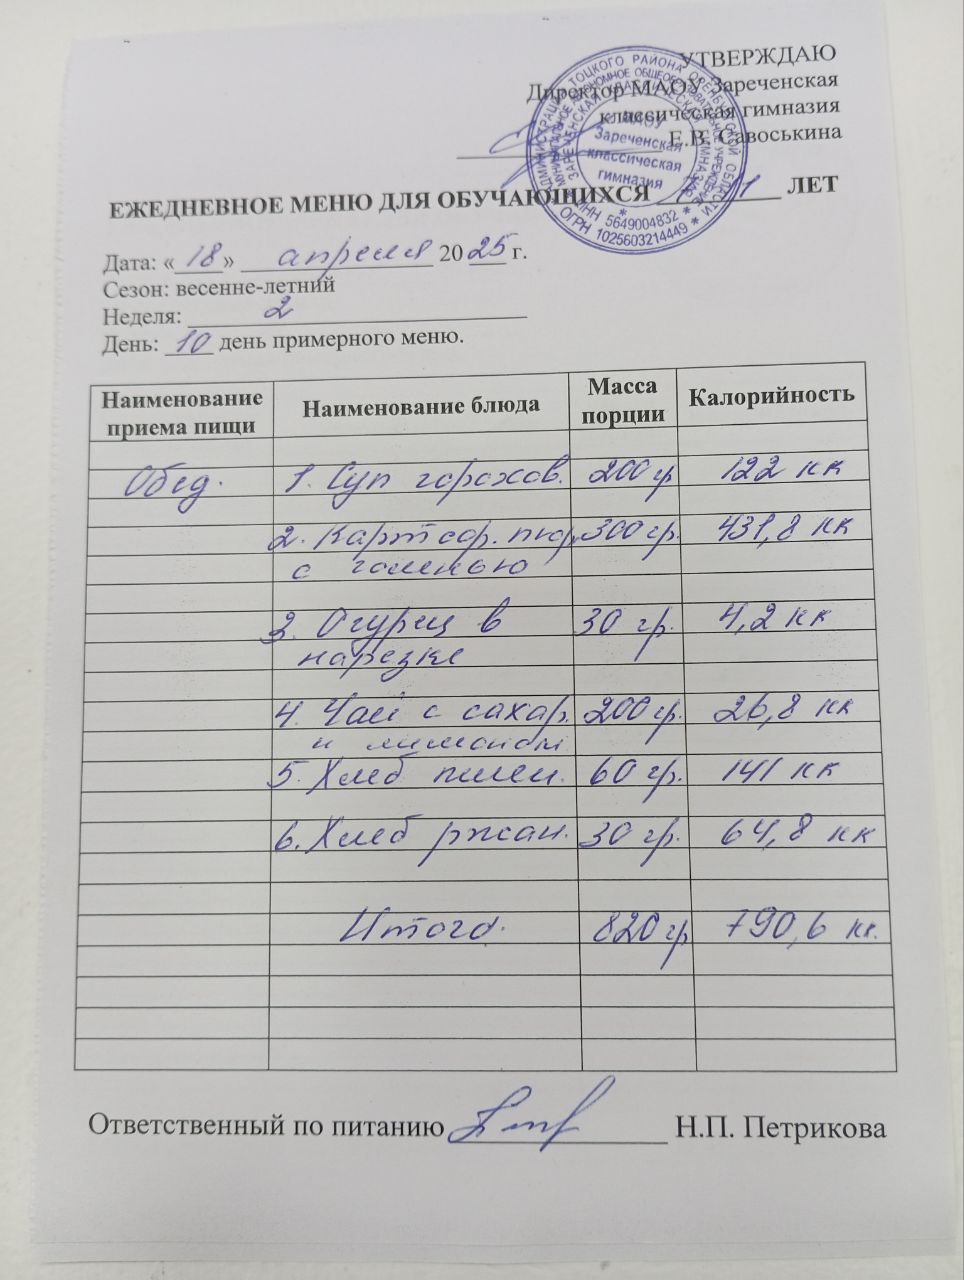 УТВЕРЖДАЮ
Директор МАОУ Зареченская
классическая гимназия
Е.В. Савоськина
МАОУ
Зареченская
классическая
гимназия
ИНН 5649004832
ОГРН 1025603214449
ЕЖЕДНЕВНОЕ МЕНЮ ДЛЯ ОБУЧАЮЩИХСЯ ЛЕТ
Дата: «18» апреля 2025 г.
Сезон: весенне-летний
Неделя: 2
День: 10 день примерного меню.
Наименование приема пищи Наименование блюда Масса порции Калорийность
Обед. 1. Суп горохов. 200 гр 122 кк
2. Картоф. пюр. 300 гр. 431,8 кк
с голенью
3. Огурец в 30 гр. 4,2 кк
нарезке
4. Чай с сахар. 200 гр. 26,8 кк
и лимоном
5. Хлеб пшен. 60 гр. 141 кк
6. Хлеб ржан. 30 гр. 64,8 кк
Итого. 820 гр 790,6 кк.
Ответственный по питанию Н.П. Петрикова